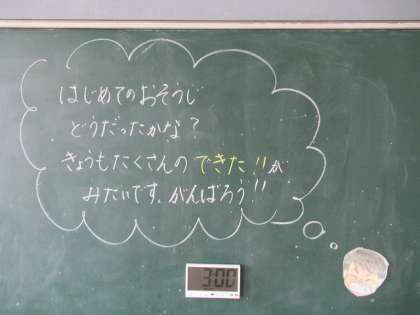 はじめてのおそうじ
どうだったかな?
きょうもたくさんの できた!! が
みたいです。がんばろう!!
3:00